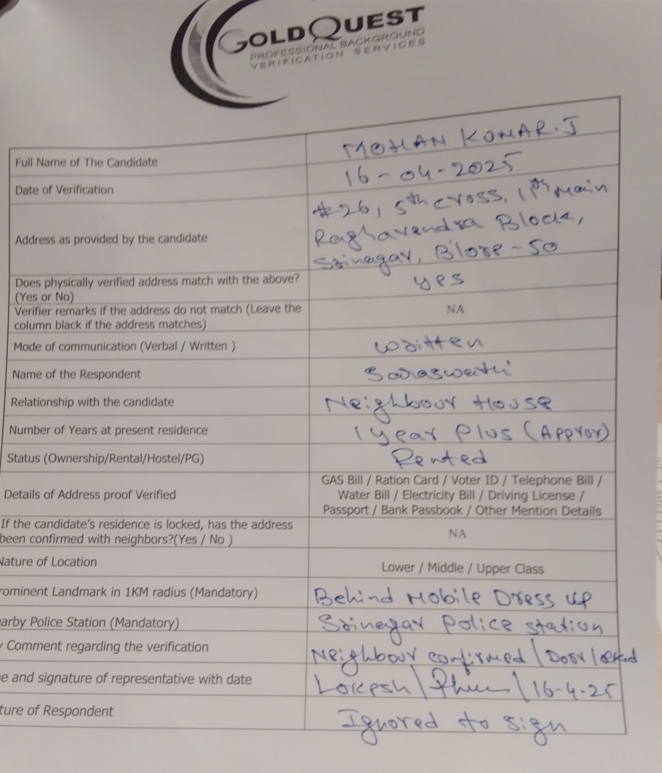 GOLDQUEST
PROFESSIONAL BACKGROUND
VERIFICATION SERVICES
Full Name of The Candidate MOHAN KUMAR.J
Date of Verification 16-04-2025
Address as provided by the candidate #26, 5th cross, 11th Main
Raghavendra Block,
Srinagar, B'lore-50
Does physically verified address match with the above?
(Yes or No) yes
Verifier remarks if the address do not match (Leave the
column black if the address matches) NA
Mode of communication (Verbal / Written ) written
Name of the Respondent Saraswathi
Relationship with the candidate Neighbour House
Number of Years at present residence 1 year Plus (Approx)
Status (Ownership/Rental/Hostel/PG) Rented
Details of Address proof Verified GAS Bill / Ration Card / Voter ID / Telephone Bill /
Water Bill / Electricity Bill / Driving License /
Passport / Bank Passbook / Other Mention Details
If the candidate's residence is locked, has the address
been confirmed with neighbors?(Yes / No ) NA
Nature of Location Lower / Middle / Upper Class
rominent Landmark in 1KM radius (Mandatory) Behind Mobile Dress up
arby Police Station (Mandatory) Srinagar Police station
y Comment regarding the verification Neighbour confirmed | Door locked
e and signature of representative with date Lokesh | | 16-4-25
ture of Respondent Ignored to sign